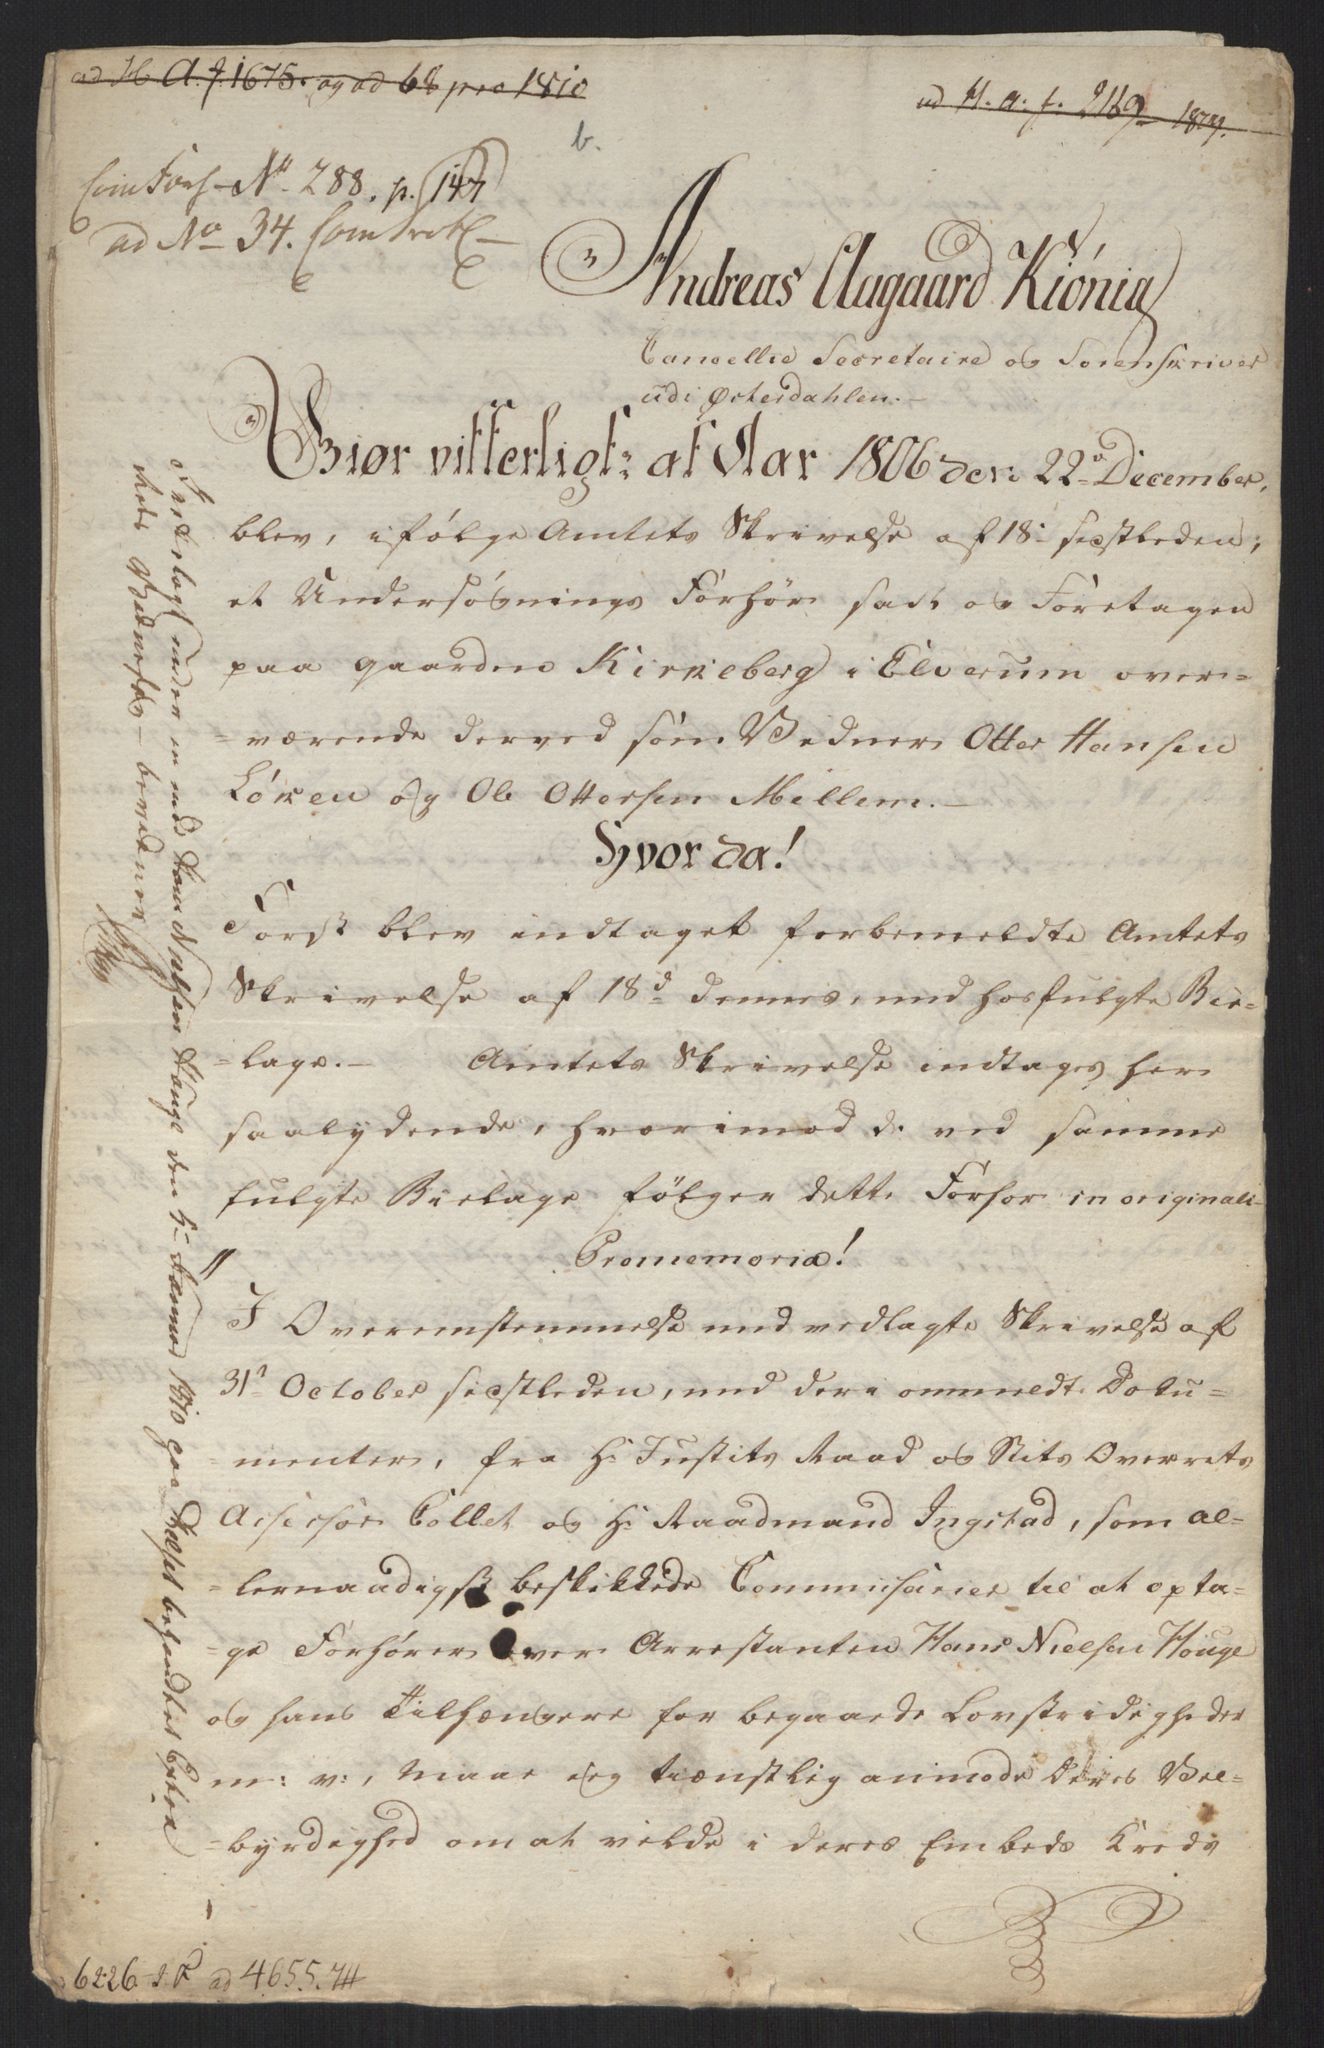 ad H. A. f. 1675. og ad 68 pro 1810
ad H. a. f. 2169 - 18
b.
Com Forh - No. 288. p. 147
ad No 34.
Andreas Aagaard Kiönig
Cancellie Secretaire og Sorenskriver
udi Østerdahlen.-
Giør vitterligt: at Aar 1806 den 22de December,
blev, ifölge Amtets Skrivelse af 18de sidstleden,
et Undersögnings Forhör sadt og Foretagen
paa gaarden Kirkeberg i Elverum over=
=værende derved som Vidner Otter Hansen
Löken og Ole Ottersen Mellem.-
Hvor da!
Forst blev indtaget forbemeldte Amtets
Skrivelse af 18de dennes, med hosfulgte Bie=
=lage.- Amtets Skrivelse indtages her
saalydende, hvorimod de ved samme
fulgte Bielage fölger dette Forhor in originali-
Promemoria!
I Overeenstemmelse med vedlagte Skrivelse af
31te October sidstleden, med deri ommeldte Doku=
=menter, fra Hr Justits Raad og Stits Overrets
Assessor Collet og Hr Raadmand Ingstad, som al=
=lernaadigst beskikkede Commissarier til at opta=
=ge Forhörer over Arrestanten Hans Nielsen Houge
og hans Tilhængere for begaaede Lovstridigheder
m: v:, maae ieg tienstlig anmode Deres Vel=
=byrdighed om at vilde i deres Embeds Kreds
Fremlagt under en med Hans Nielsen Hauge den 5te 1810 paa befundtet
rets Vedmest - bevidner
6226. J. K ad 4655. 74